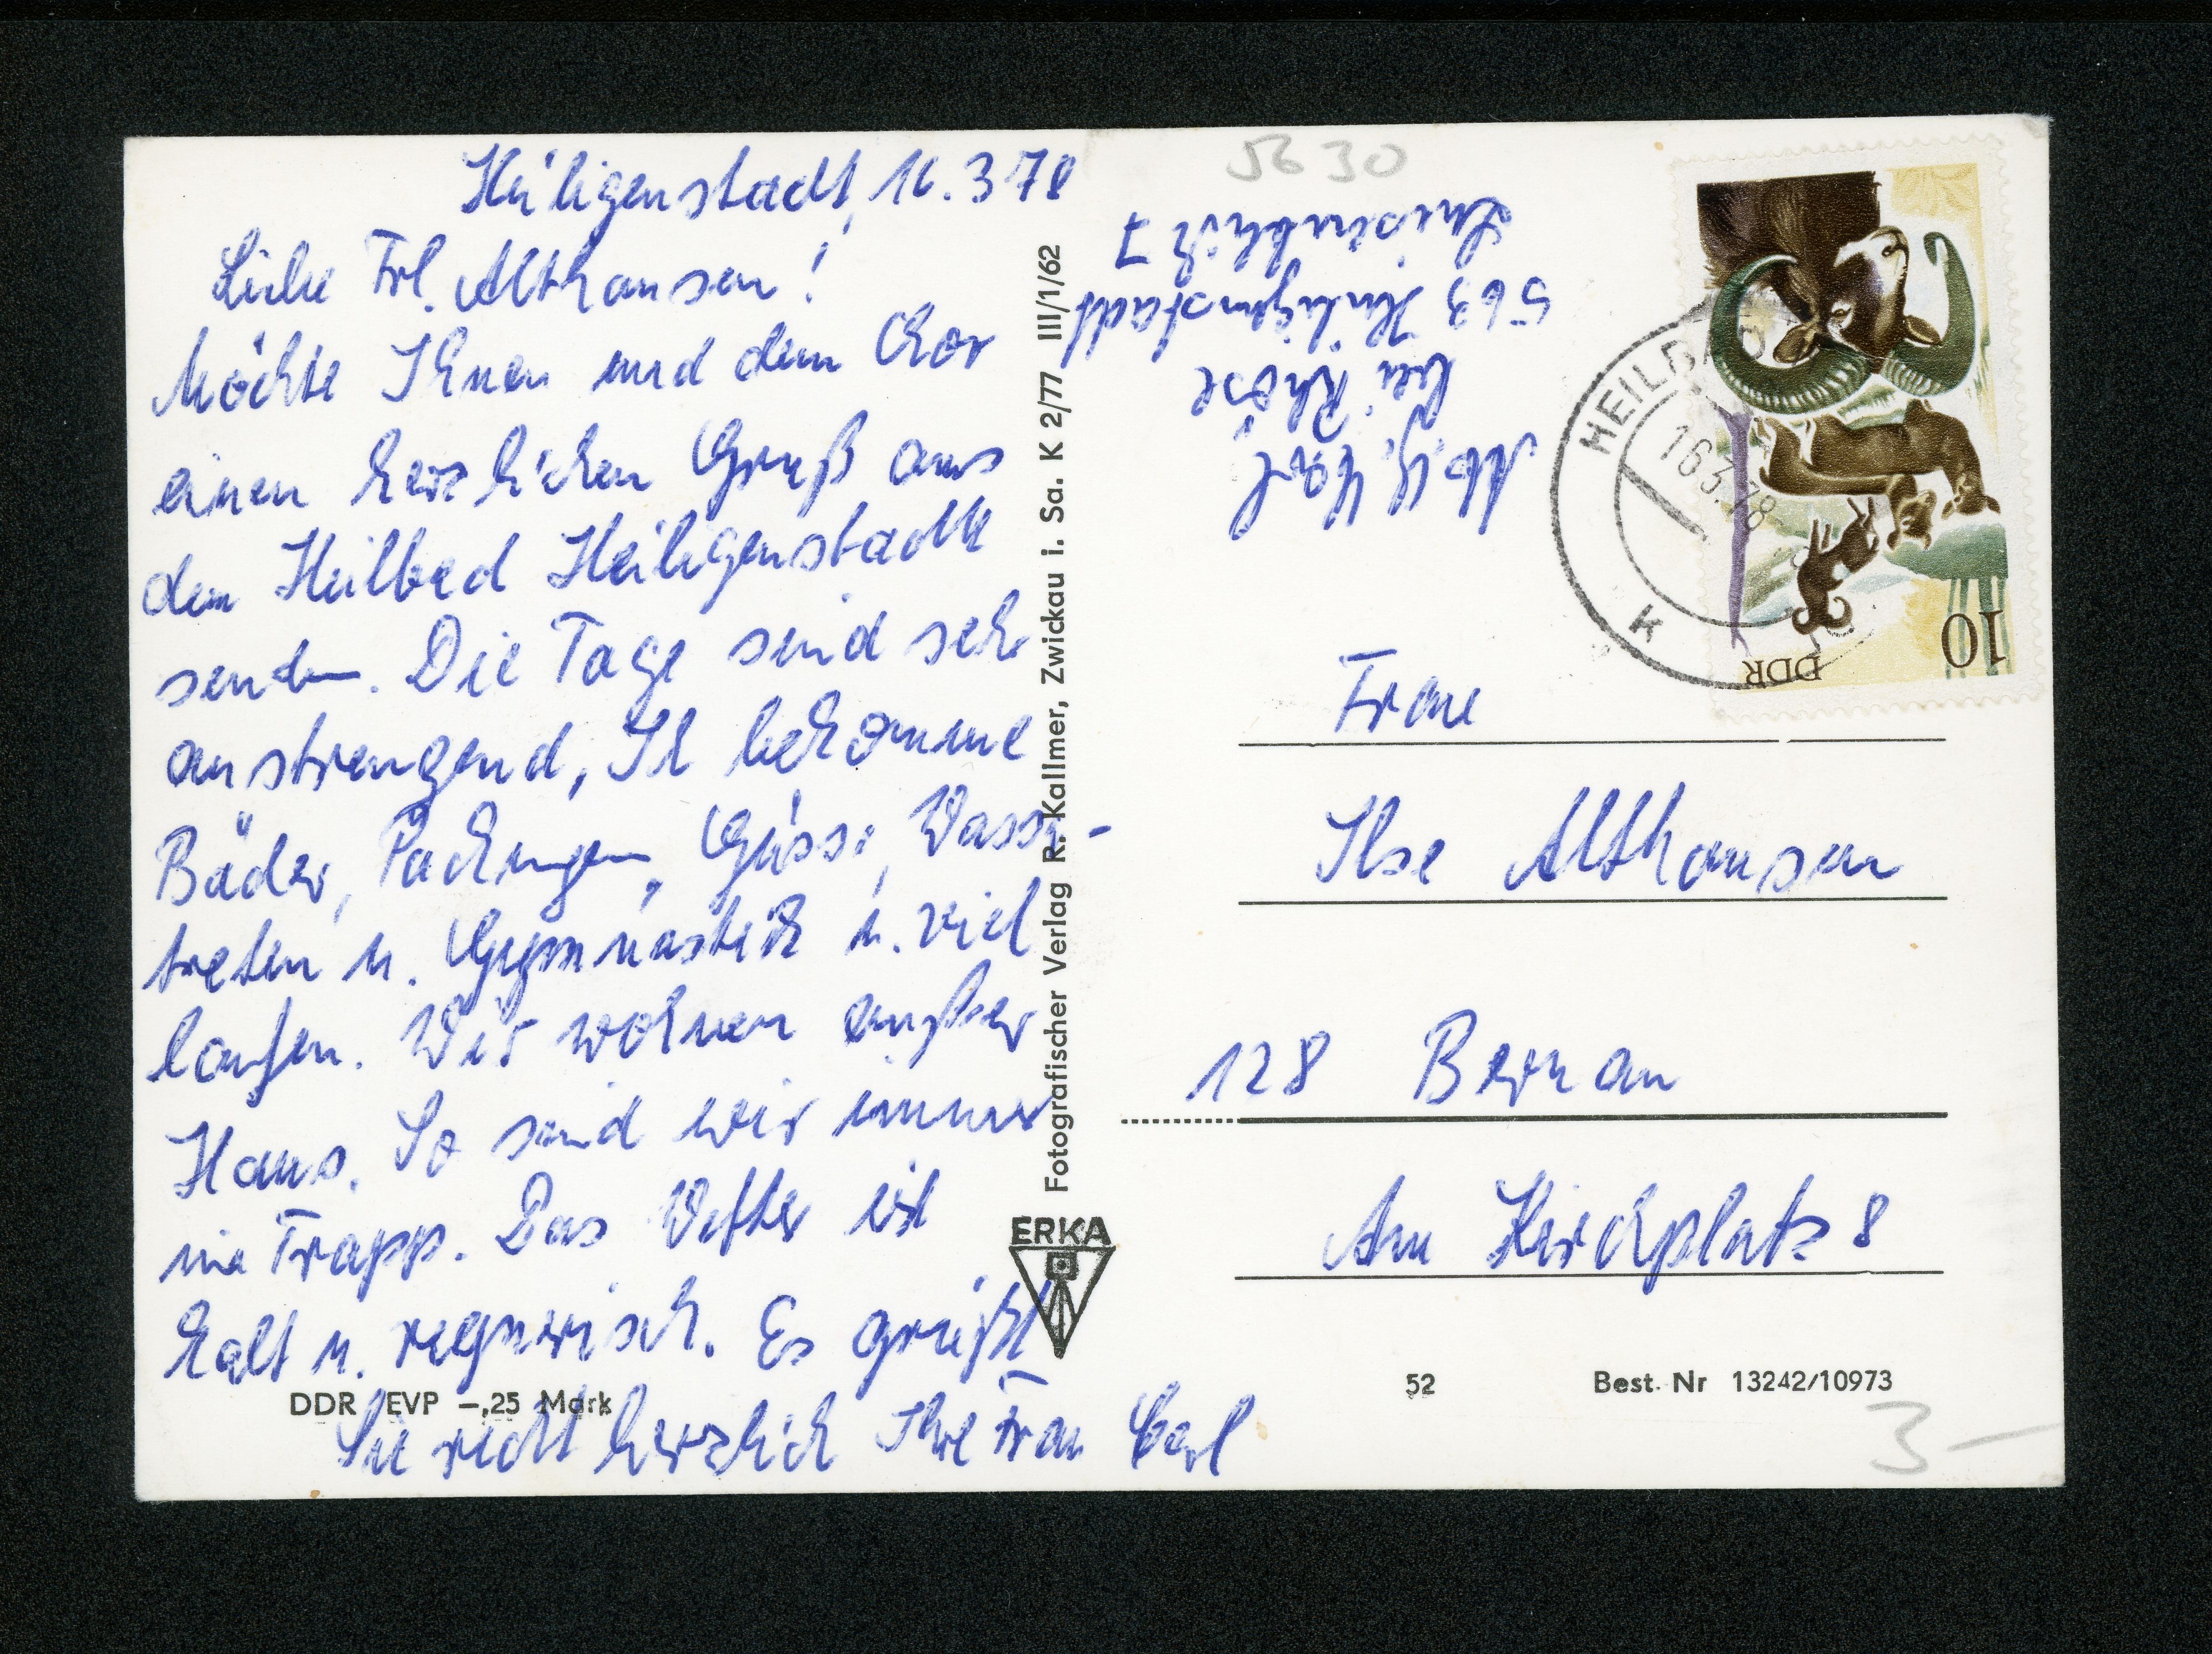 Heiligenstadt, 16.3 78
Liebe Frl. Althausen!
Möchte Ihnen und dem Chor
einen herzlichen Gruß aus
dem Heilbad Heiligenstadt
senden. Die Tage sind sehr
anstrengend, Ich bekomme
Bäder, Packungen, Güsse, Wasser-
treten u. Gymnastik u. viel
laufen. Wir wohnen außer
Haus. So sind wir immer
im Trapp. Das Wetter ist
kalt u. regnerisch. Es grüßt
Sie recht herzlich Ihre Frau Carl
DDR EVP -,25 Mark
Fotografischer Verlag R. Kallmer, Zwickau i. Sa. K 2/77 III/1/62
ERKA
5630
Abs. Carl
bei Rhöse
563 Heiligenstadt
7
HEILBAD
16.3.78
K
DDR
10
Frau
Ilse Althausen
128 Bernau
Am Kirchplatz 8
52
Best. Nr 13242/10973
3 –